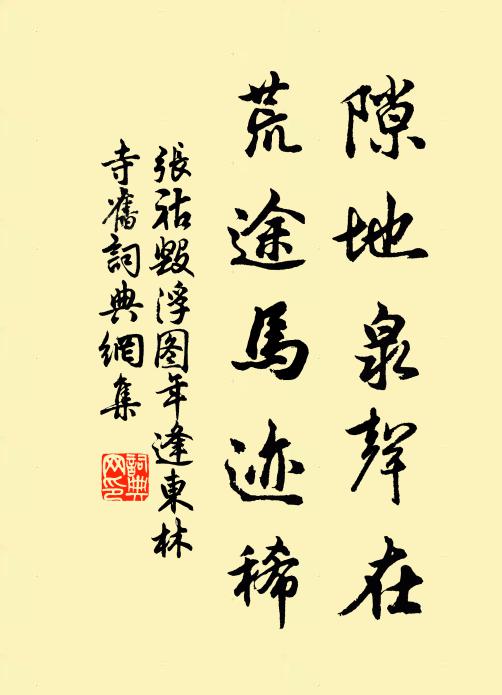 隙地泉聲在
荒途馬迹稀
張祜毀浮图年逢東林
寺舊詞典網集
詞典
网印